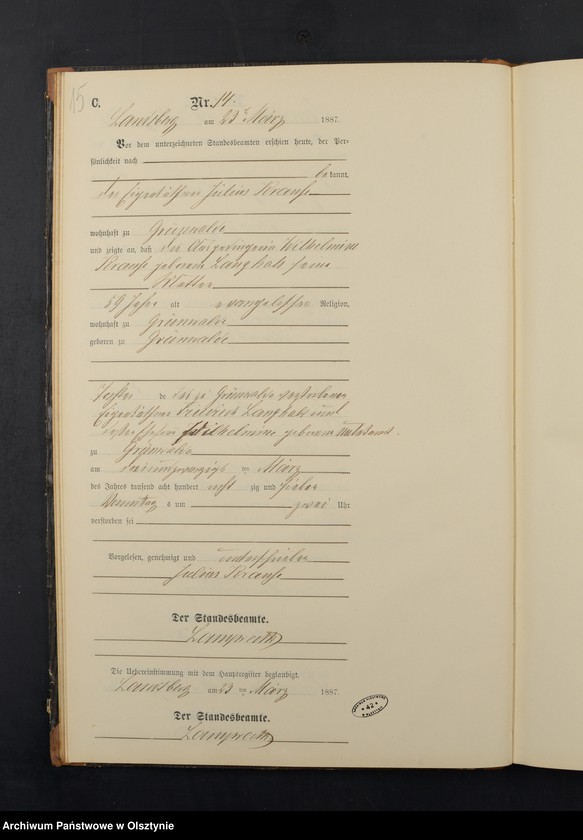 15
C.
Nr. 14.
Landsberg am 23ten März 1887.
Vor dem unterzeichneten Standesbeamten erschien heute, der Per-
sönlichkeit nach
bekannt,
der Eigenkäthner Julius Krause
wohnhaft zu Grünwalde
und zeigte an, daß die Wilhelmine
Krause geborene Langhals seine
Mutter
69 Jahre alt evangelischer Religion,
wohnhaft zu Grünwalde
geboren zu Grünwalde
Tochter de s zu Grünwalde verstorbenen
Eigenkäthner Friedrich Langhals und
Wilhelmine geborene
zu Grünwalde
am dreiundzwanzigsten März
des Jahres tausend acht hundert acht zig und sieben
Vormittags um zwei Uhr
verstorben sei
Vorgelesen, genehmigt und unterschrieben
Julius Krause
Der Standesbeamte.
Die Uebereinstimmung mit dem Hauptregister beglaubigt.
Landsberg am 23 ten März 1887.
Der Standesbeamte.
42
Archiwum Państwowe w Olsztynie